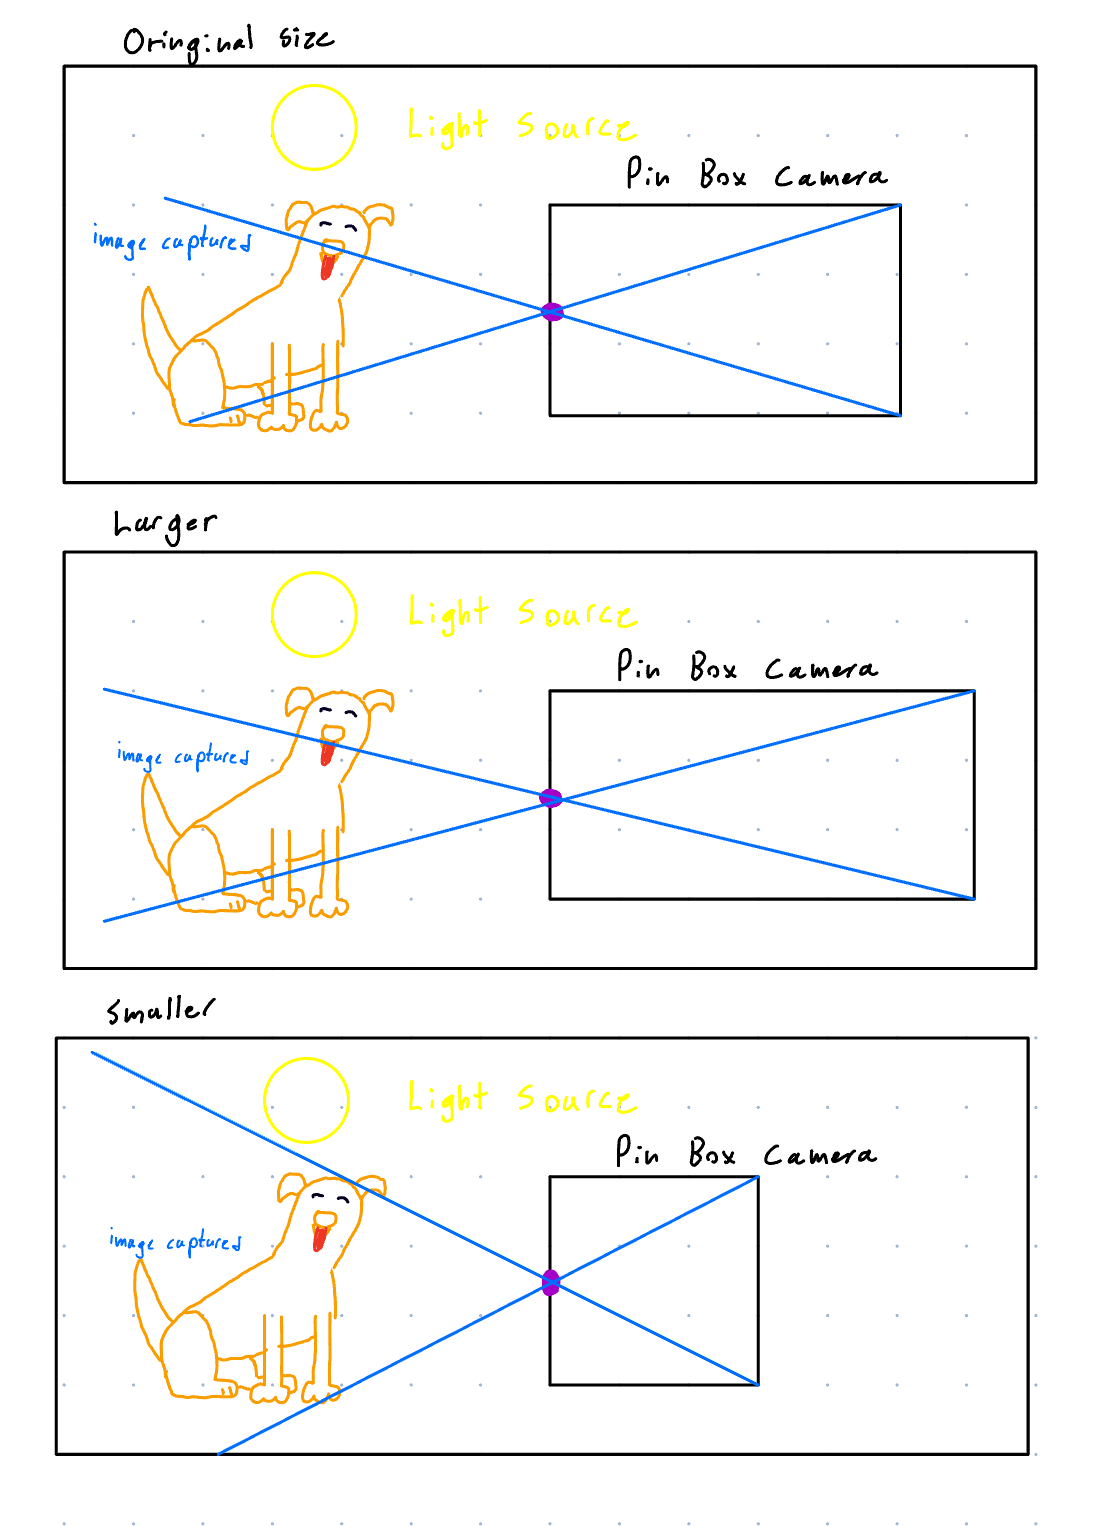 Oringinal size
Light Source
Pin Box Camera
image captured
Larger
Light Source
Pin Box Camera
image captured
Smaller
Light Source
Pin Box Camera
image captured